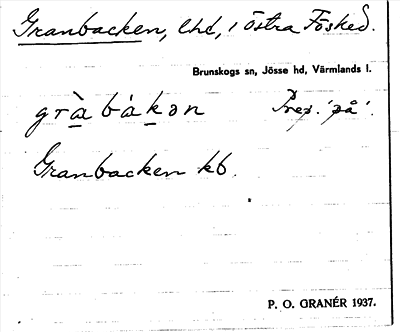 Granbacken, lht, i östra Fösked.
Brunskogs sn, Jösse hd, Värmlands l.
gràbàkən Prep. 'på'.
Granbacken kb.
P. O. GRANÉR 1937.